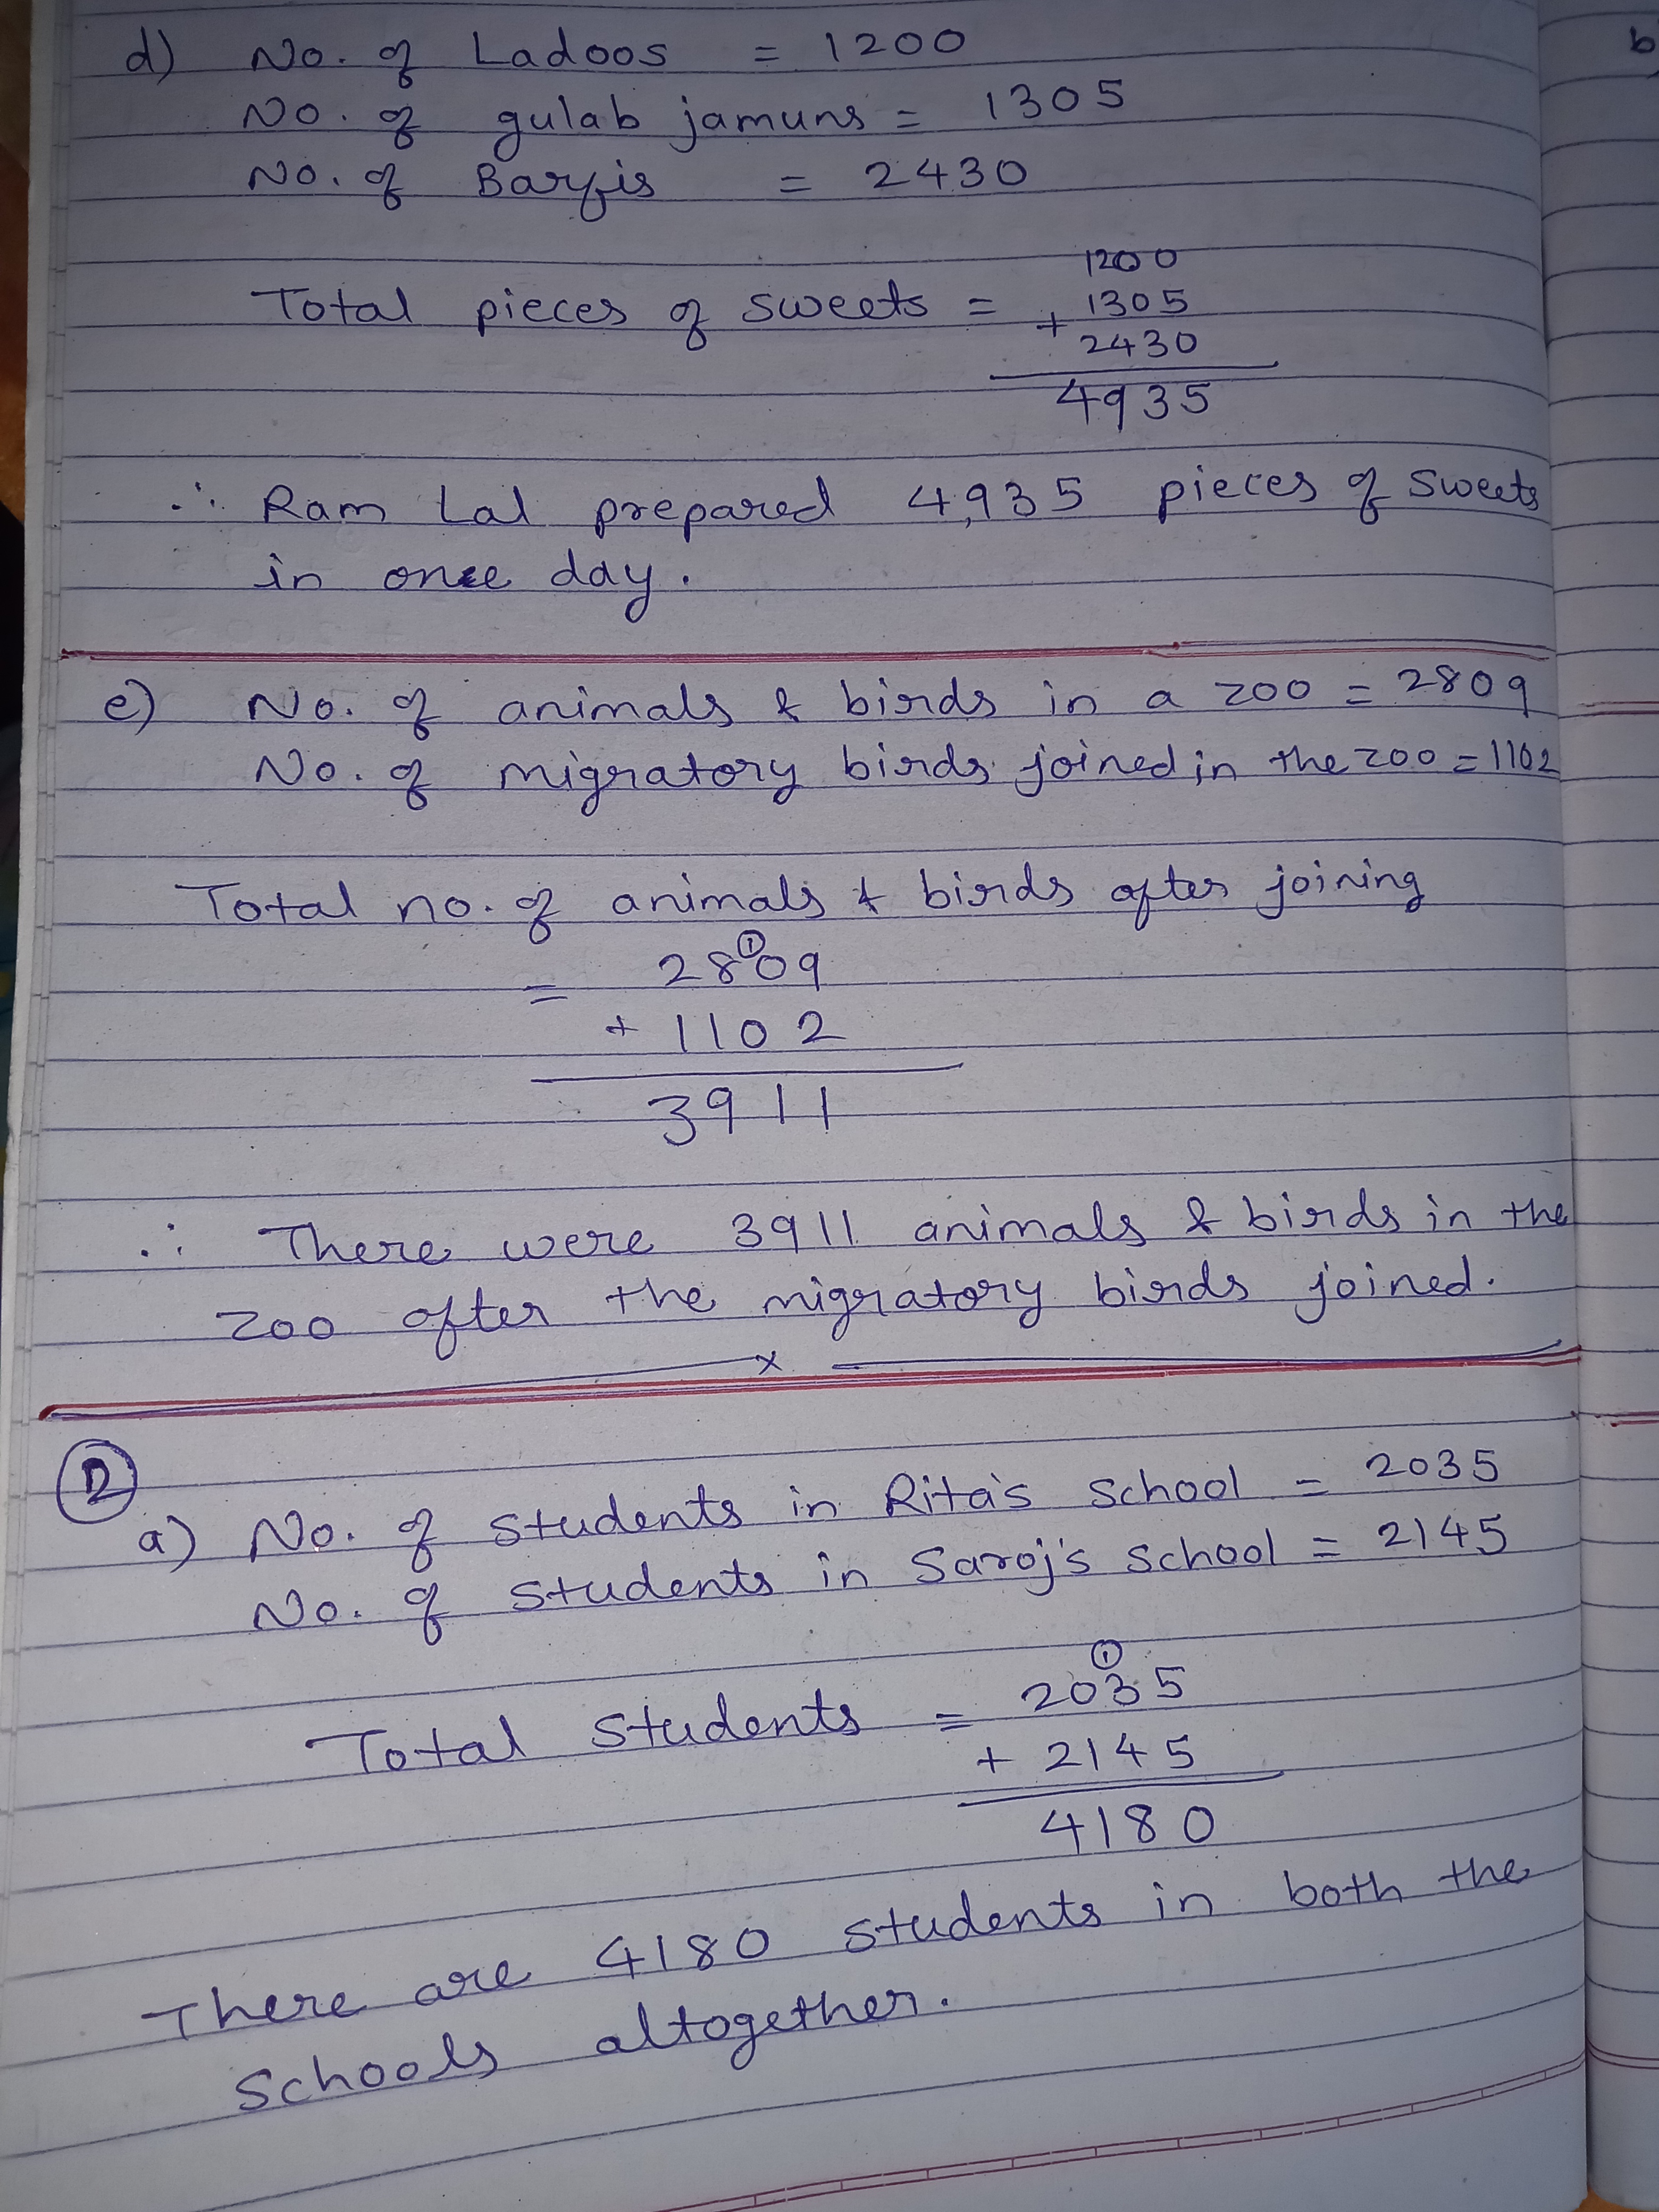 d) No. of Ladoos = 1200
No. of gulab jamuns = 1305
No. of Barfis = 2430
1200
Total pieces of sweets = + 1305
2430
4935
∴ Ram Lal prepared 4,935 pieces of sweets
in once day.
e) No. of animals & birds in a zoo = 2809
No. of migratory birds joined in the zoo = 1102
Total no. of animals & birds after joining
1
= 2809
+ 1102
3911
∴ There were 3911 animals & birds in the
zoo after the migratory birds joined.
x
2
a) No. of students in Rita's school = 2035
No. of students in Saroj's school = 2145
1
Total students = 2035
+ 2145
4180
There are 4180 students in both the
schools altogether.
b